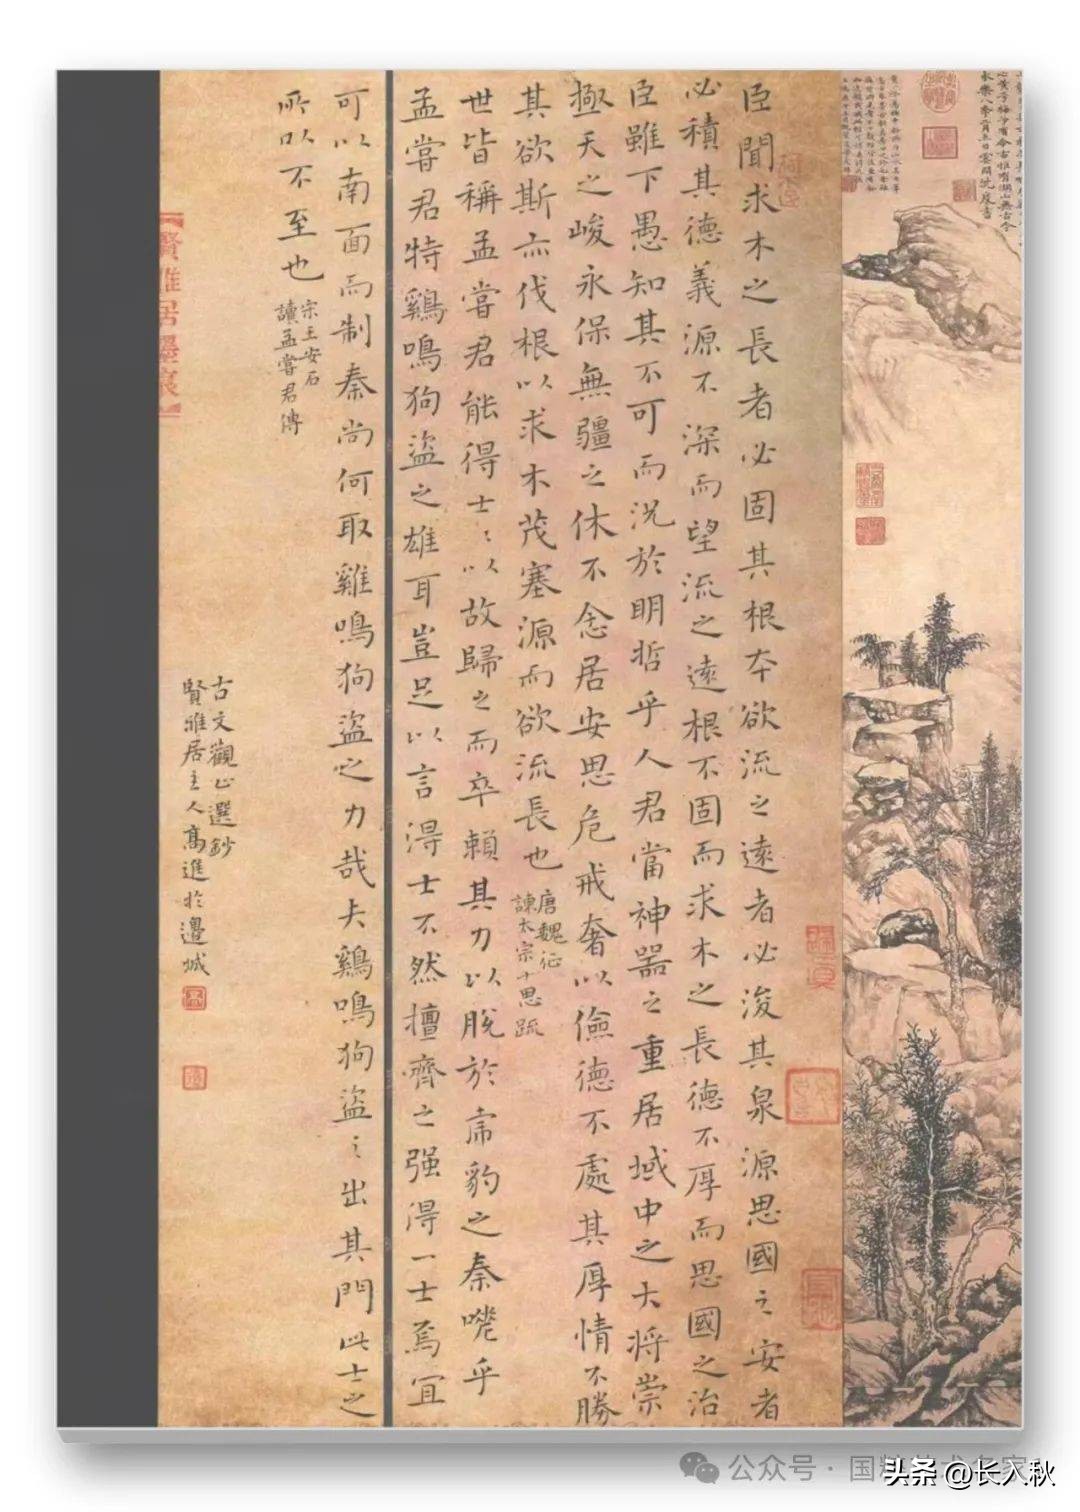 臣聞求木之長者必固其根本欲流之遠者必浚其泉源思國之安者
必積其德義源不深而望流之遠根不固而求木之長德不厚而思國之治
臣雖下愚知其不可而況於明哲乎人君當神器之重居域中之大将崇
極天之峻永保無疆之休不念居安思危戒奢以儉德不處其厚情不勝
其欲斯亦伐根以求木茂塞源而欲流長也
唐魏征
諫太宗十思疏
世皆稱孟嘗君能得士〻以故歸之而卒賴其力以脫於虎豹之秦嗟乎
孟嘗君特鷄鳴狗盜之雄耳豈足以言得士不然擅齊之强得一士焉宜
可以南面而制秦尚何取雞鳴狗盜之力哉夫鷄鳴狗盜〻出其門此士之
所以不至也
宋王安石
讀孟嘗君傳
古文觀止選鈔
賢雅居主人高進於邊城
賢雅居墨
公众号·国
头条 @长入秋